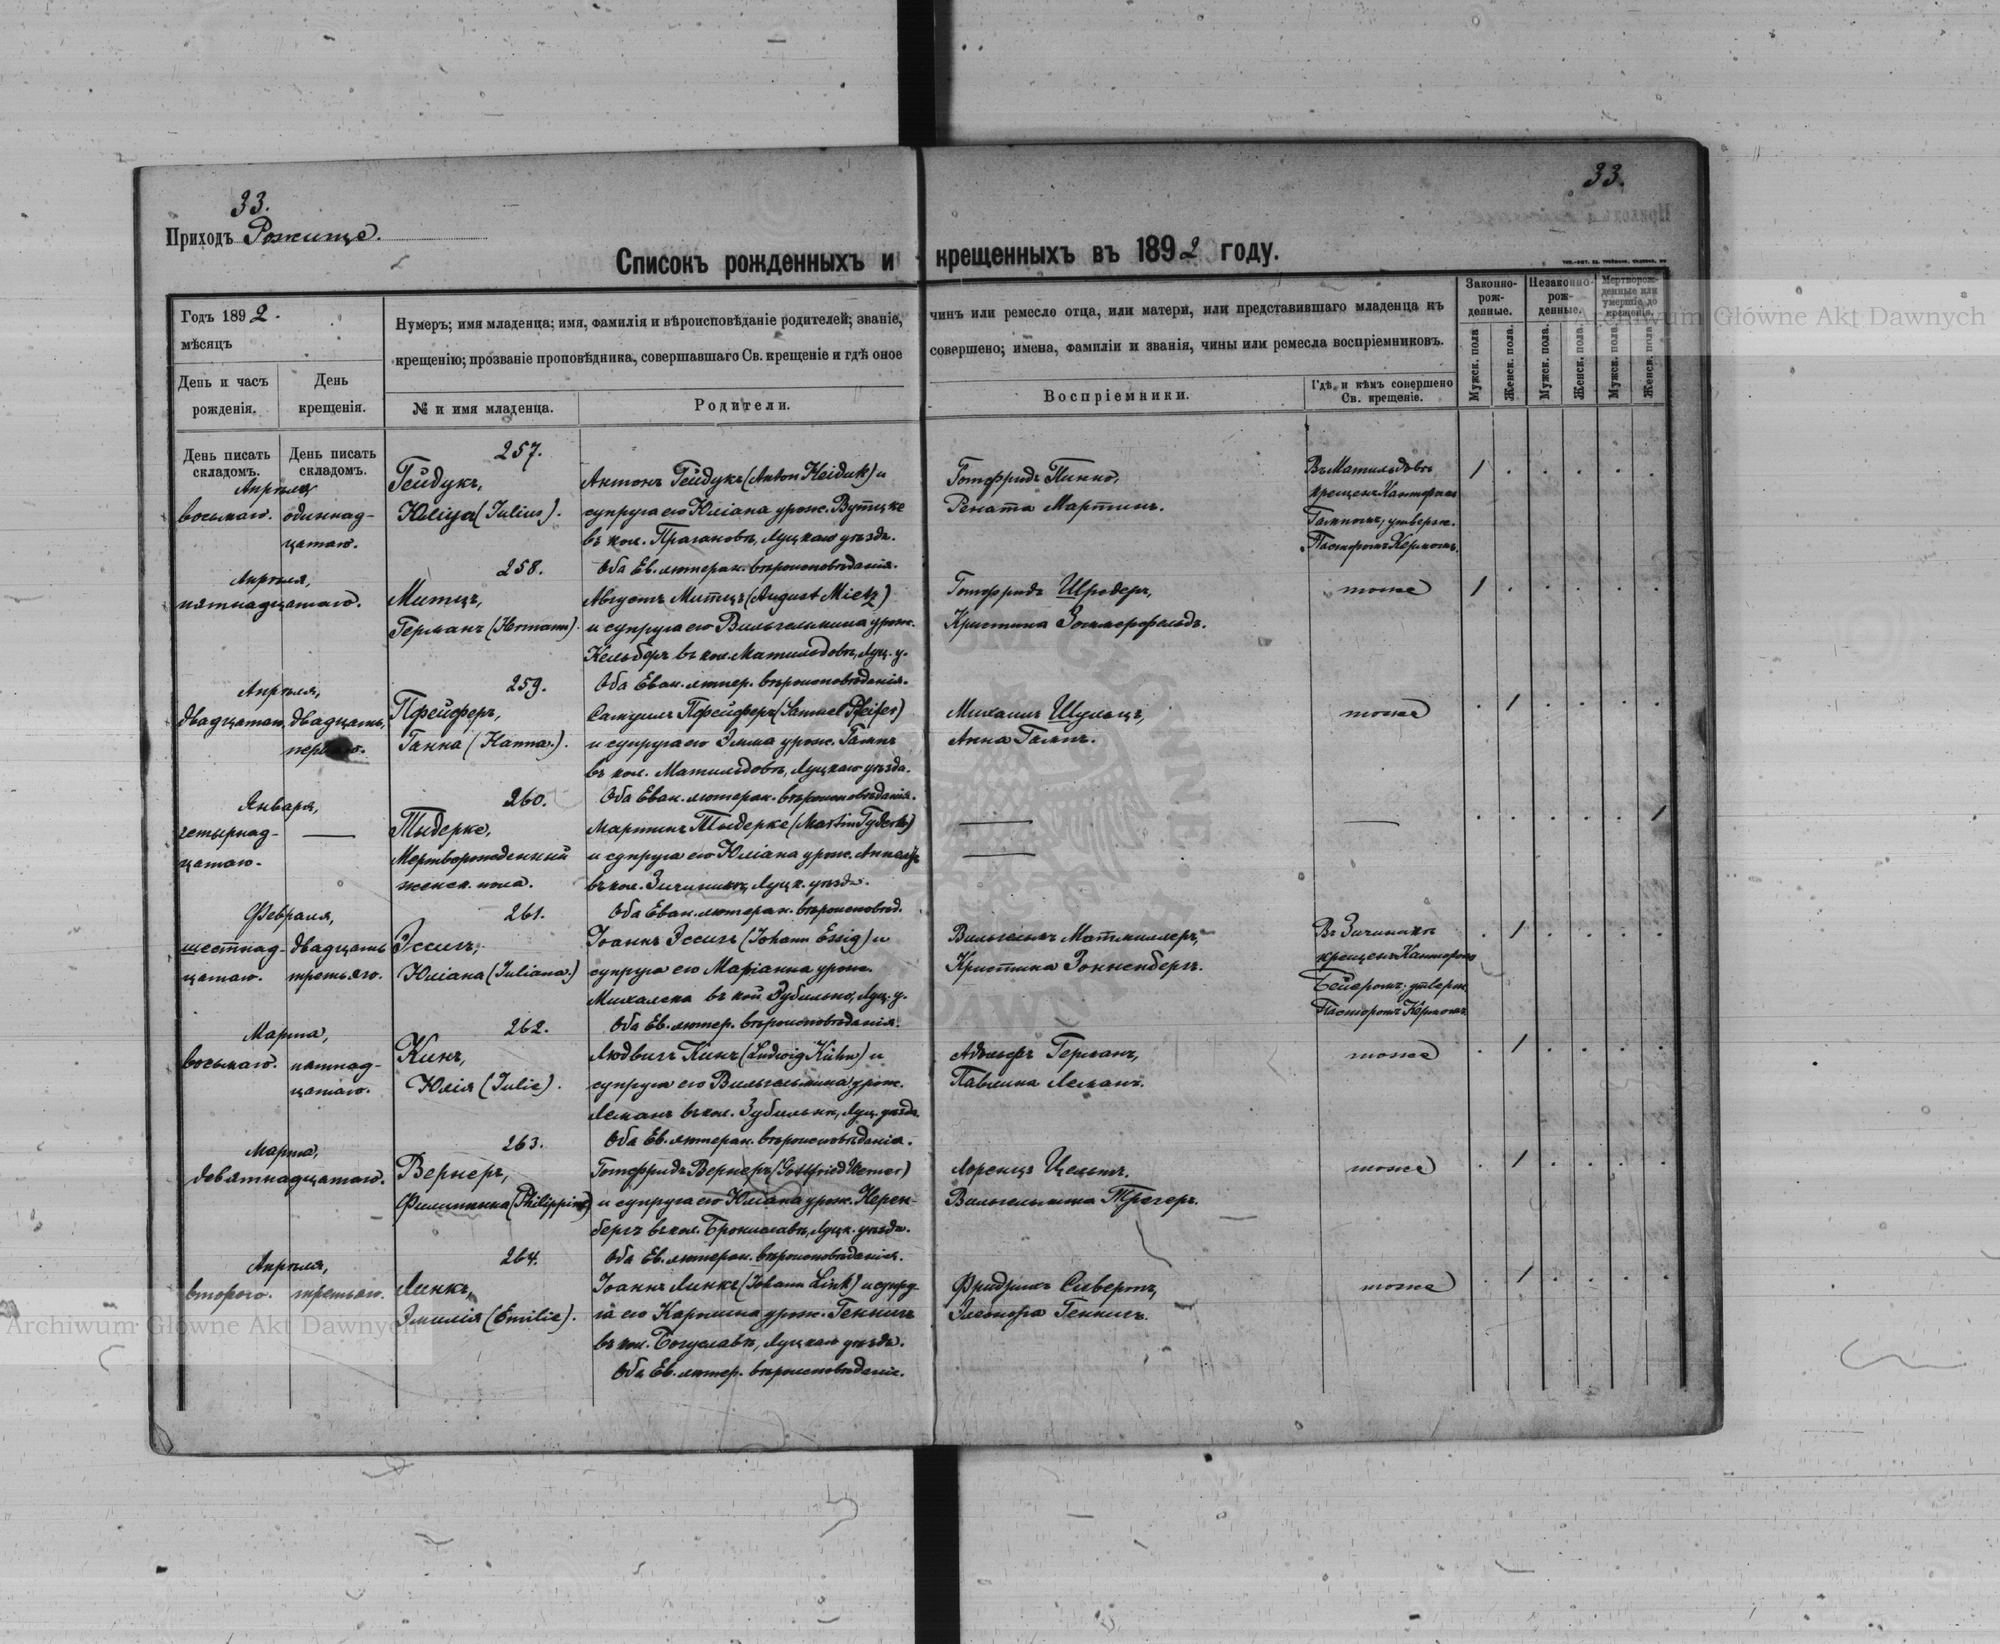 33.
33.
Приходъ Рожище.
Списокъ рожденныхъ и крещенныхъ въ 1892 году.
Годъ 1892.
мѣсяцъ
День и часъ рожденія.
День крещенія.
Нумеръ; имя младенца; имя, фамилія и вѣроисповѣданіе родителей; званіе, чинъ или ремесло отца, или матери, или представившаго младенца къ
крещенію; прозваніе проповѣдника, совершавшаго Св. крещеніе и гдѣ оное совершено; имена, фамиліи и званія, чины или ремесла воспріемниковъ.
№ и имя младенца.
Родители.
Воспріемники.
Гдѣ и кѣмъ совершено Св. крещеніе.
Законно-рож-денные.
Незаконно-рож-денные.
Мертворож-денные или умершіе до крещенія.
Мужск. пола
Женск. пола.
Мужск. пола.
Женск. пола.
Мужск. пола.
Женск. пола.
День писать складомъ.
День писать складомъ.
257.
Апрѣля
восьмаго.
одиннад-
цатаго.
Гейдукъ,
Юлiya (Julius).
Антонъ Гейдукъ (Anton Heiduk) и
супруга его Юліана урож. Вутцке
въ кол. Прагановѣ, Луцкаго уѣзда.
Оба Ев. лютеран. вѣроисповѣданія.
Готфридъ Пинно,
Рената Мартинъ.
Въ Матильдовѣ
крещенъ Канторомъ
утверж.
Пасторомъ Кермомъ.
1
258.
Апрѣля,
пятнадцатаго.
Митцъ,
Германъ (Hermann).
Августъ Митцъ (August Mietz)
и супруга его Вильгельмина урож.
Кельберъ въ кол. Матильдовѣ, Луц. у.
Оба Еван. лютер. вѣроисповѣданія.
Готфридъ Шродеръ,
Кристина Зоммерфельдъ.
тоже
1
259.
Апрѣля,
двадцатаго,
двадцать
перваго.
Пфейферъ,
Ганна (Hanna).
Самуилъ Пфейферъ (Samuel Pfeifer)
и супруга его Эмма урож. Гампъ
въ кол. Матильдовѣ, Луцкаго уѣзда.
Оба Еван. лютеран. вѣроисповѣданія.
Михаилъ Шульцъ,
Анна Гампъ.
тоже
1
260.
Января,
четырнад-
цатаго.
Тыдерке,
Мертворожденный
женск. пола.
Мартинъ Тыдерке (Martin Tyderke)
и супруга его Юліана урож.
въ кол. Луцк. уѣзда.
Оба Еван. лютеран. вѣроисповѣд.
1
261.
Февраля,
шестнад-
цатаго.
двадцать
третьяго.
Эссигъ,
Юліана (Juliana.)
Іоаннъ Эссигъ (Johann Essig) и
супруга его Маріанна урож.
Михалска въ кол. Зубильно, Луц. у.
Оба Ев. лютер. вѣроисповѣданія.
Вильгельмъ Матмиллеръ,
Кристина Зонненбергъ.
крещенъ Канторомъ
Бейеромъ; утверж.
Пасторомъ Кермомъ
1
262.
Марта,
восьмаго.
пятнад-
цатаго.
Кинъ,
Юлія (Julie).
Людвигъ Кинъ (Ludwig Kühn) и
супруга его Вильгельмина урож.
Леманъ въ кол. Зубильнѣ, Луц. уѣзда.
Оба Ев. лютеран. вѣроисповѣданія.
Адольфъ Германъ,
Павлина Леманъ.
тоже
1
263.
Марта,
девятнадцатаго.
Вернеръ,
Филиппина (Philippine)
Готфридъ Вернеръ (Gottfried Werner)
и супруга его Юліана урож. Нерен-
бергъ въ кол. Брониславѣ, Луцк. уѣзда.
Оба Ев. лютеран. вѣроисповѣданія.
Лоренцъ Цельтъ.
Вильгельмина Трегеръ.
тоже
1
264.
Апрѣля,
второго.
третьяго.
Линкъ,
Эмилія (Emilie).
Іоаннъ Линкъ (Johann Link) и супру-
га его Каролина урож. Геннигъ
въ кол. Богуславѣ, Луцкаго уѣзда.
Оба Ев. лютер. вѣроисповѣданія.
Фридрихъ Сивертъ,
Элеонора Геннигъ.
тоже
1
Archiwum Główne Akt Dawnych
Archiwum Główne Akt Dawnych